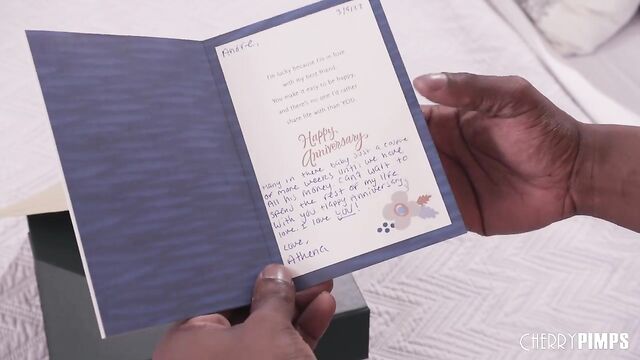 3/9/22
Andre,
I'm lucky because I'm in love
with my best friend.
You make it easy to be happy,
and there's no one I'd rather
share life with than YOU.
Happy
Anniversary
Hang in there baby just a couple
or more weeks until we have
All his money can't wait to
spend the rest of my life
with you Happy Anniversary
love I love you!
Love,
Athena
CHERRYPIMPS